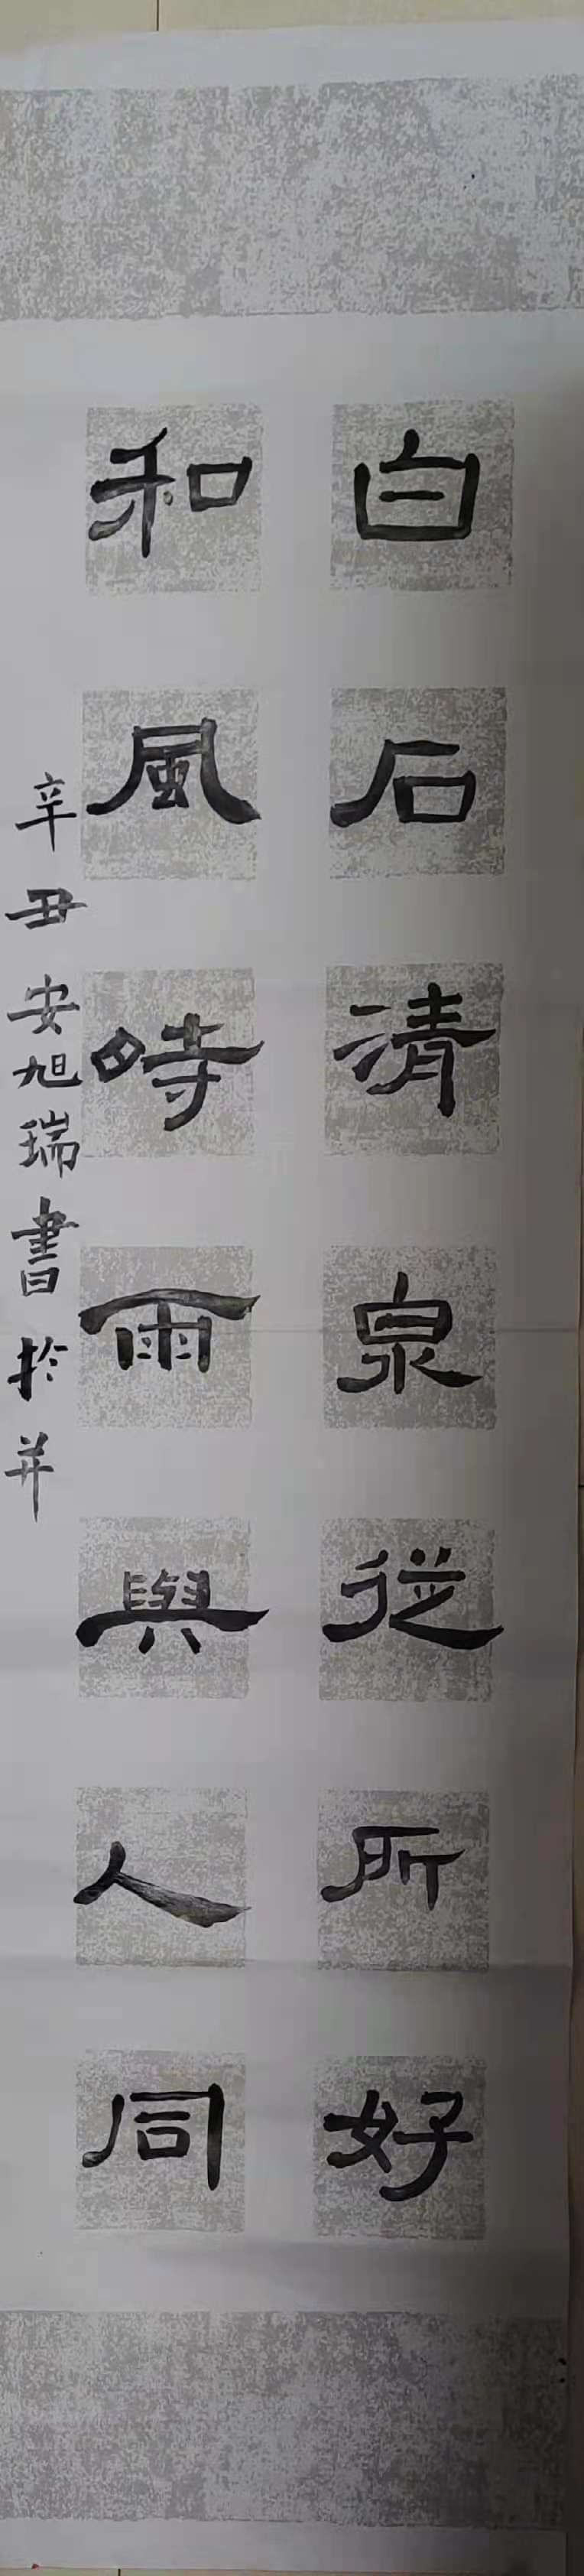 白石清泉從所好
和風時雨與人同
辛丑安旭瑞書於并